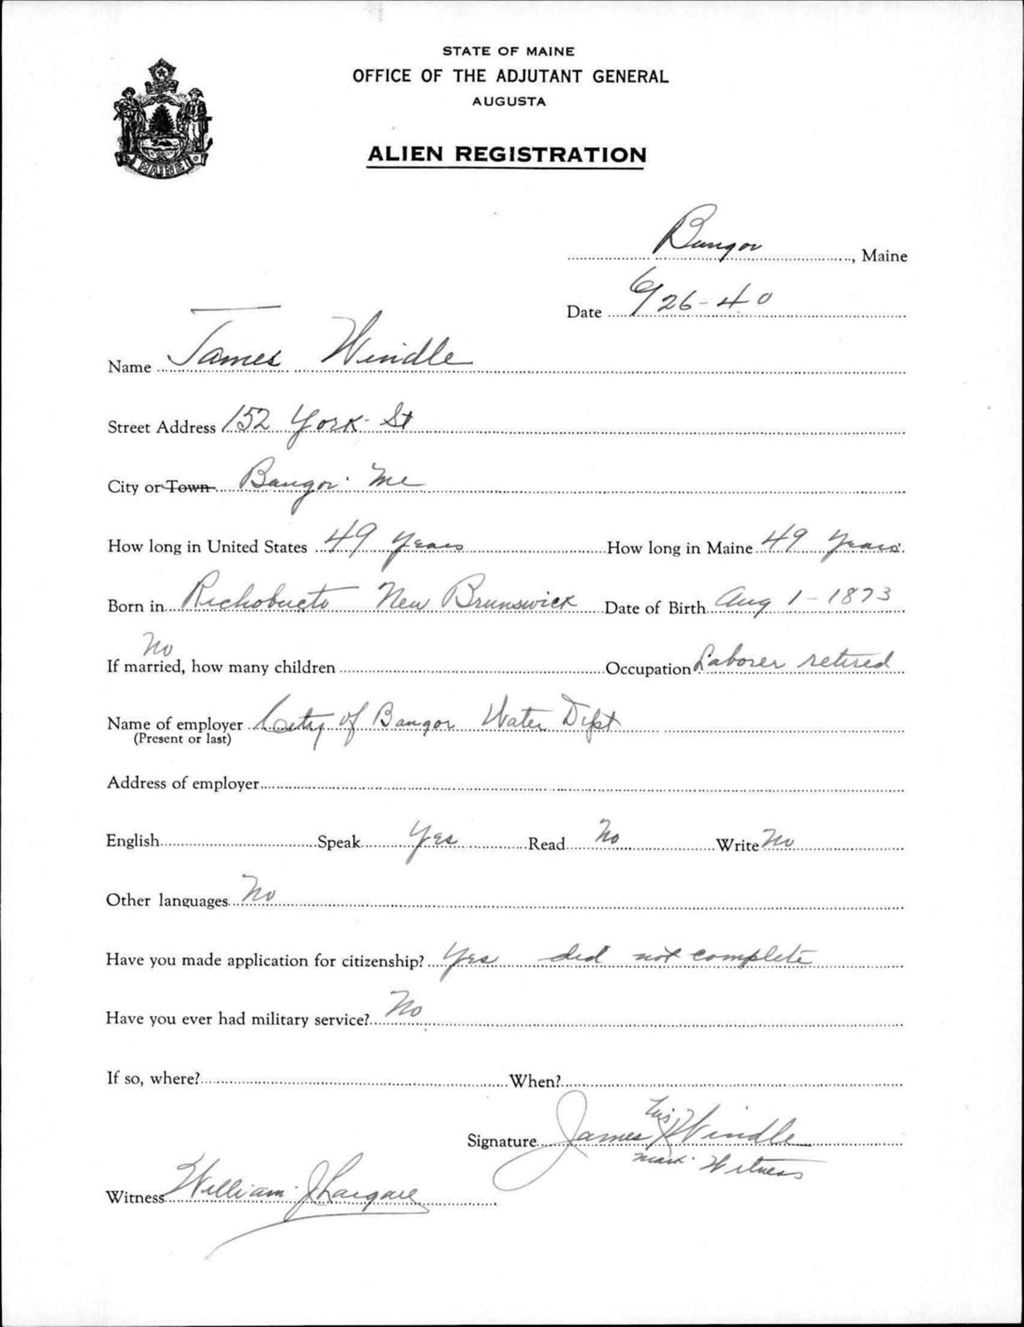 STATE OF MAINE
OFFICE OF THE ADJUTANT GENERAL
AUGUSTA
ALIEN REGISTRATION
MAINE
Bangor, Maine
Date 6/26-40
Name James Windle
Street Address 152 York St
City or Town Bangor Me
How long in United States 49 years How long in Maine 49 Years
Born in Richobucto New Brunswick Date of Birth Aug 1-1873
No
If married, how many children Occupation Laborer retired
Name of employer City of Bangor Water Dept
(Present or last)
Address of employer
English Speak Yes Read No Write No
Other languages No
Have you made application for citizenship? Yes did not complete
Have you ever had military service? No
If so, where? When?
Signature James his X Windle
mark Witness
Witness William J